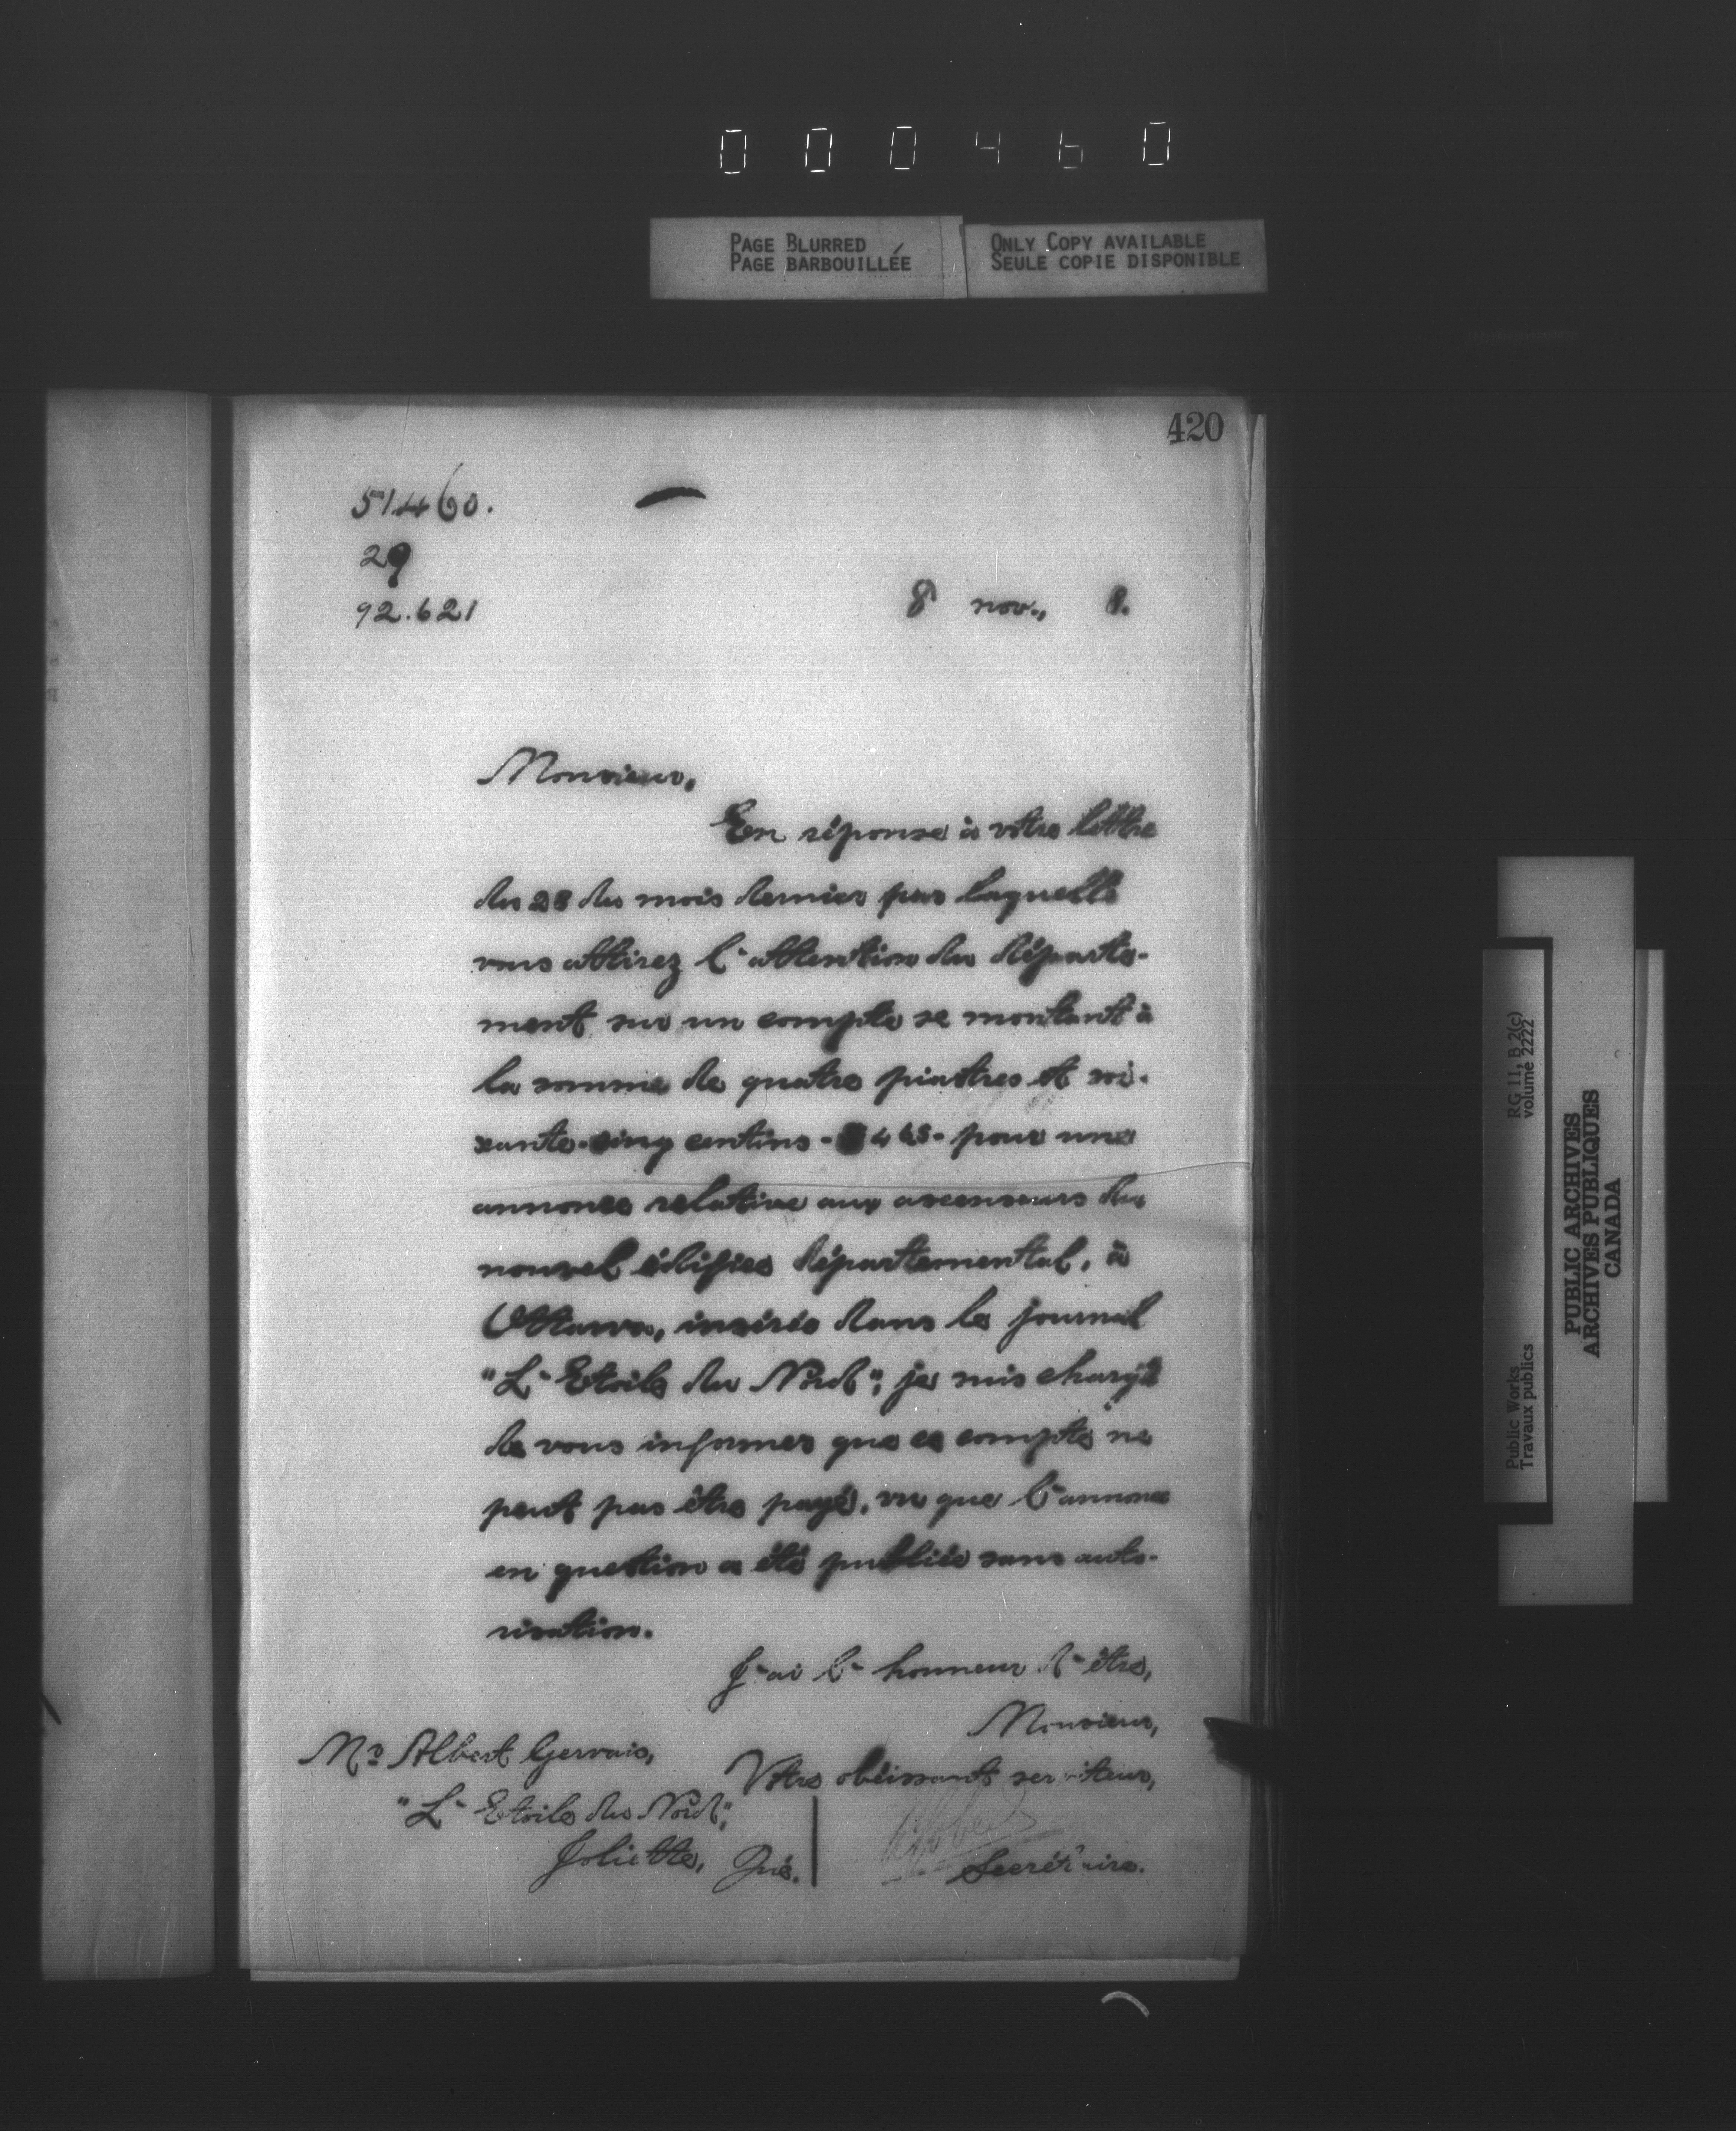 000460
PAGE BLURRED
PAGE BARBOUILLÉE
ONLY COPY AVAILABLE
SEULE COPIE DISPONIBLE
420
51460.
29
92.621
8 nov., 8.
Monsieur,
En réponse à votre lettre
du 28 du mois dernier par laquelle
vous attirez l'attention du départe-
ment sur un compte se montant à
la somme de quatre piastres et soi-
xante-cinq centins - $4.65 - pour une
annonce relative aux ascenseurs du
nouvel édifice départemental, à
Ottawa, insérée dans le journal
"L'Etoile du Nord", je suis chargé
de vous informer que ce compte ne
peut pas être payé, vu que l'annonce
en question a été publiée sans auto-
risation.
J'ai l'honneur d'être,
Monsieur,
Votre obéissant serviteur,
Secrétaire.
Mr Albert Gervais,
"L'Etoile du Nord",
Joliette, Qué.
Public Works
Travaux publics
RG 11, B 2(c)
volume 2222
PUBLIC ARCHIVES
ARCHIVES PUBLIQUES
CANADA